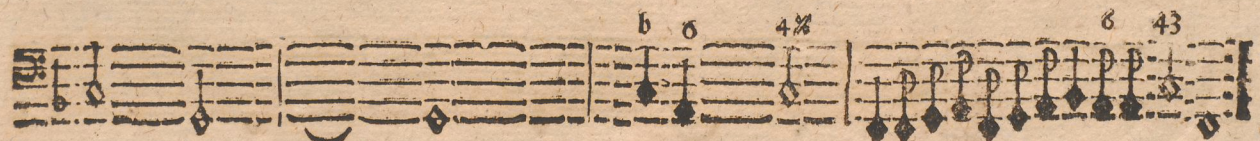 b 6 4※ 6 43